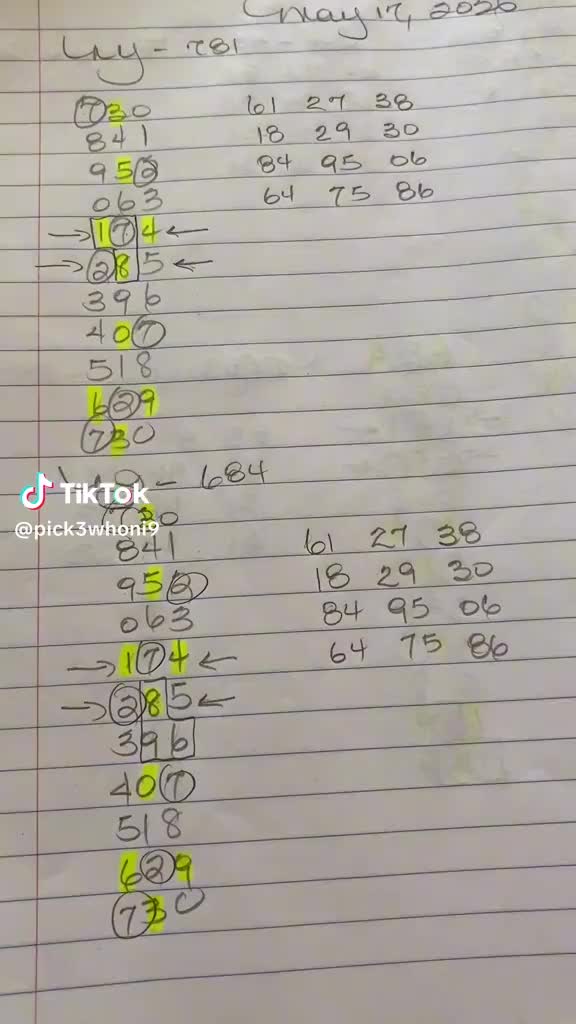 May 17, 2026
NY - 781
730 61 27 38
841 18 29 30
952 84 95 06
063 64 75 86
→ 174 ←
→ 285 ←
396
407
518
629
730
- 684
TikTok
@pick3whoni9
730
841 61 27 38
952 18 29 30
063 84 95 06
→ 174 ← 64 75 86
→ 285 ←
396
407
518
629
730